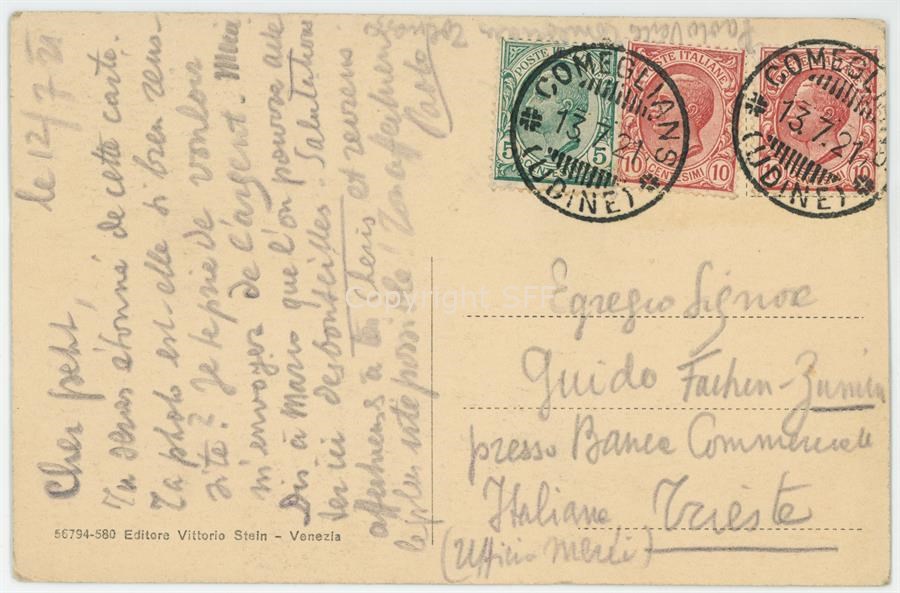 le 12/7 21
Cher petit,
Tu seras étonné de cette carte.
Ta photo est elle si bien réus-
site? Je te prie de vouloir
m'envoyer de l'argent. Merci
Dis à Mario que l'on pouvais ache
ter ici des bouteilles. Salutations
à tous et reviens
le plus vite possible
Paolo
POSTE ITALIANE
5 5
POSTE ITALIANE
10 CENTESIMI 10
10
COMEGLIANS
13.7.21
(UDINE)
COMEGLIANS
13.7.21
(UDINE)
Copyright SFF
Egregio Signor
Guido Fachin-
presso Banca Commerciale
Italiana, Trieste
(Ufficio Merci)
56794-580 Editore Vittorio Stein - Venezia